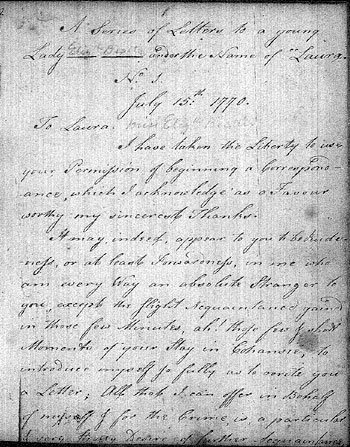 A Series of Letters to a young
Lady under the Name of "Laura.
No. 1.
July 15th. 1770.
To Laura.
I have taken the Liberty to use
your Permission of beginning a Correspond-
ance, which I acknowledge as a Favour
worthy my sincerest Thanks.
It may, indeed, appear to you to be
ness, or at least Forwardness, in one who
am every Way an absolute Stranger to
you, except the slight Acquaintance gained
in those few Minutes, ah! those few & short
Moments of your Stay in, to
introduce myself so fully as to write you
a Letter; All that I can offer in Behalf
of myself & for the Crime is a particular
Desire of further Acquaintance